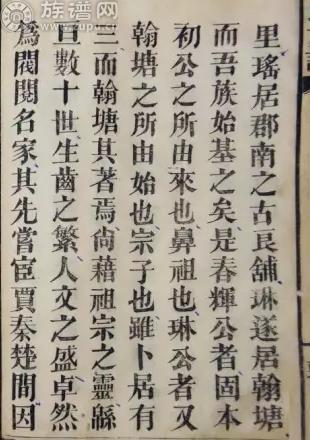 族谱网
www.zupu.cn
里瑤居郡南之古良舖琳遂居翰塘
而吾族始基之矣是春輝公者固本
初公之所由來也鼻祖也琳公者又
翰塘之所由始也宗子也雖卜居有
三而翰塘其著焉尙藉祖宗之靈緜
亘數十世生齒之繁人文之盛卓然
爲閥閱名家其先嘗宦賈秦楚間因